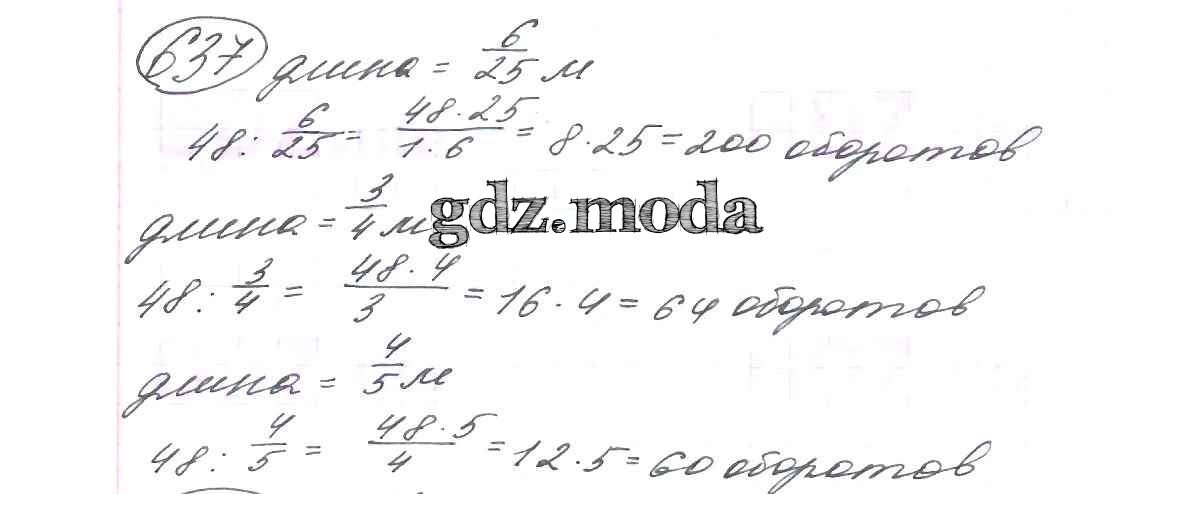 637 длина = 6/25 м
48 : 6/25 = 48·25/1·6 = 8·25 = 200 оборотов
длина = 3/4 м
gdz.moda
48 : 3/4 = 48·4/3 = 16·4 = 64 оборотов
длина = 4/5 м
48 : 4/5 = 48·5/4 = 12·5 = 60 оборотов